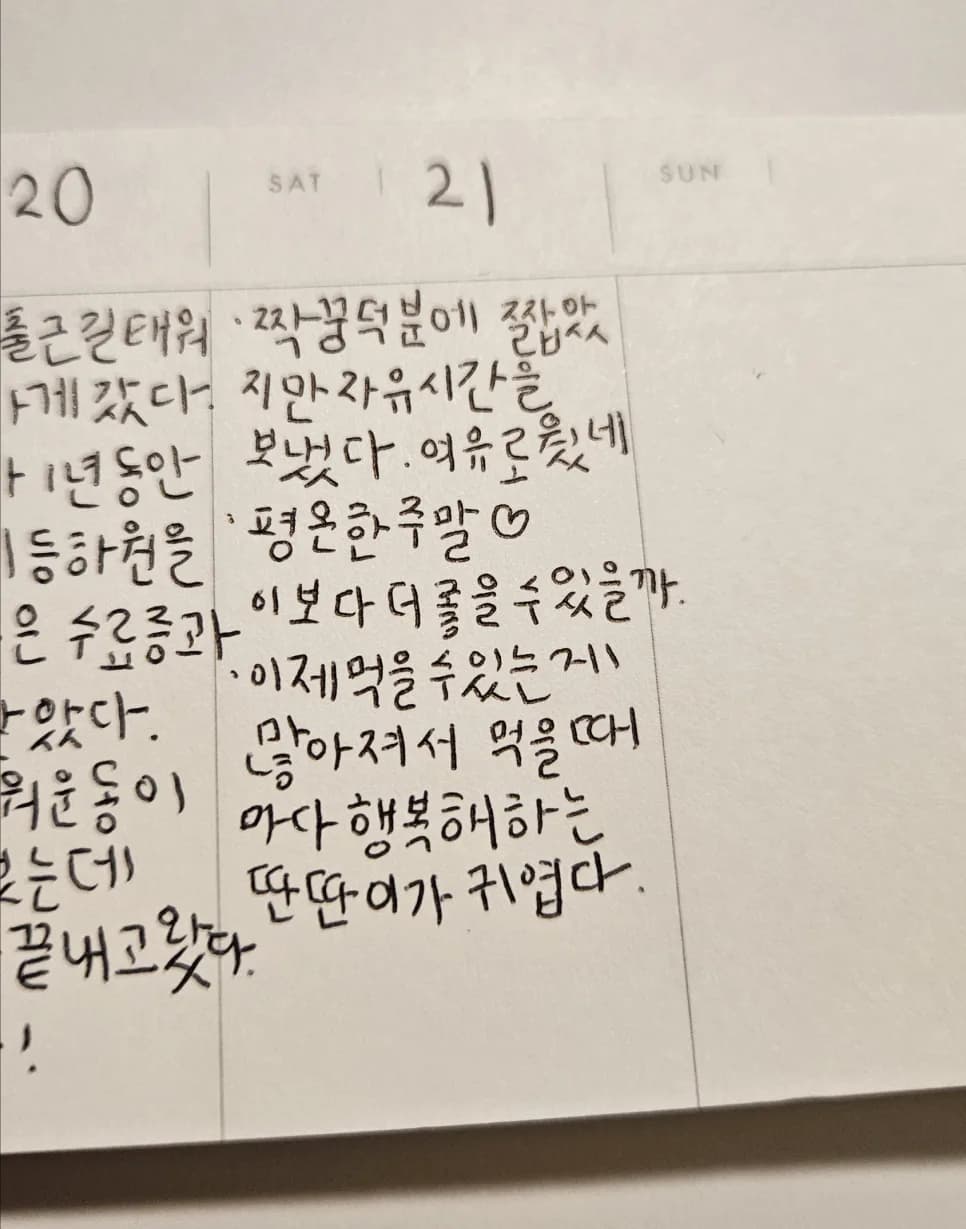 20
출근길태워
게 갔다.
1년 동안
등하원을
은 수료증과
왔다.
운동이
는데
끝내고왔다.
!
SAT 21
·짝꿍덕분에 짧았
지만 자유시간을
보냈다. 여유로웠네
·평온한 주말♡
이보다 더 좋을 수 있을까.
·이제 먹을 수 있는 게
많아져서 먹을때
마다 행복해하는
딴딴이가 귀엽다.
SUN